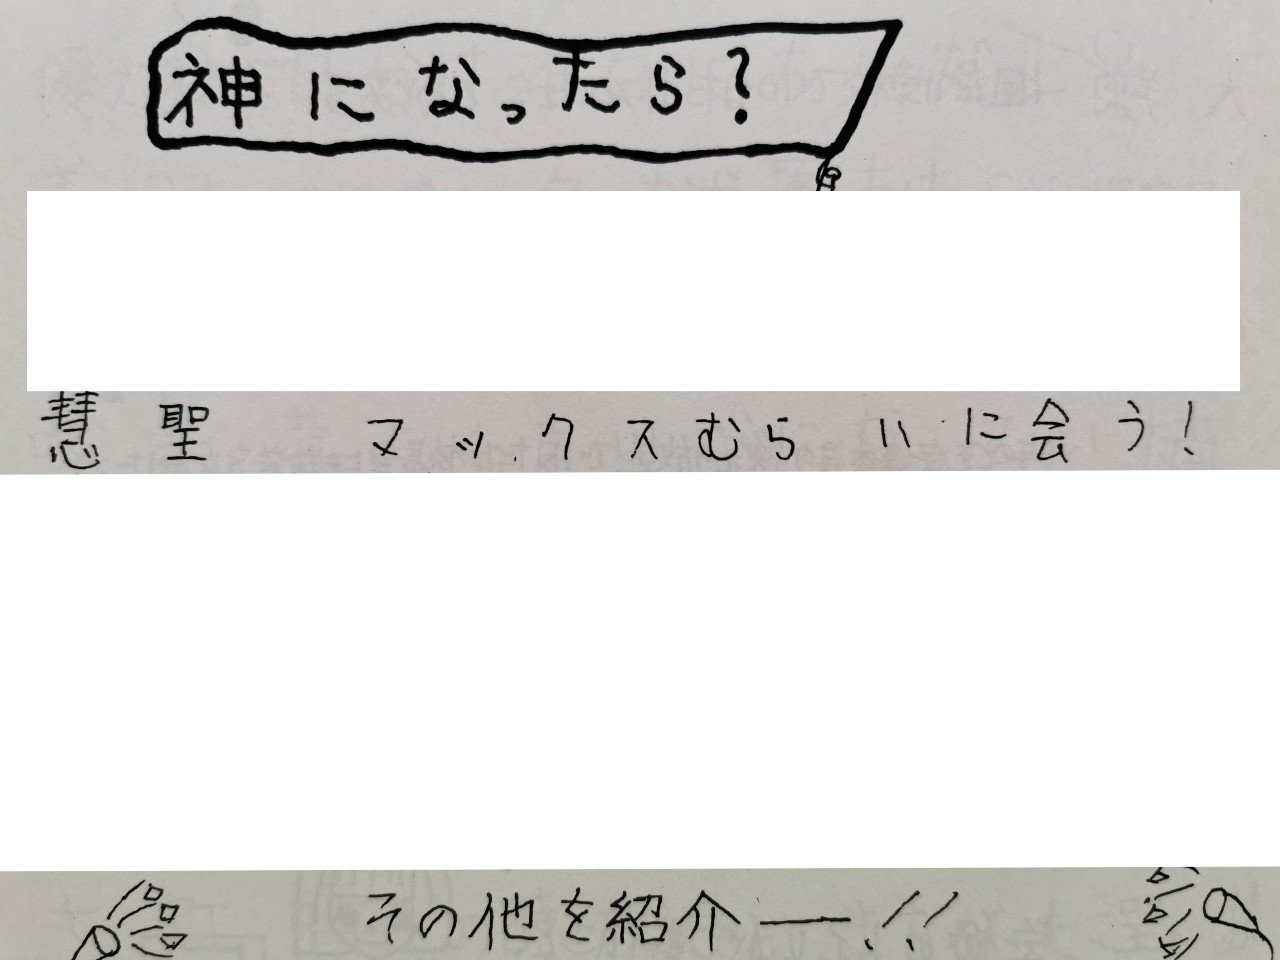 神になったら?
慧聖 マックスむらいに会う!
その他を紹介ー!!